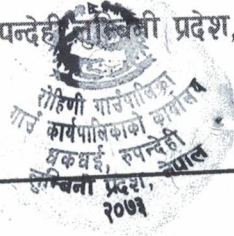 पन्देही लुम्बिनी प्रदेश,
रोहिणी गाउँपालिका
गाउँ कार्यपालिकाको कार्यालय
धकधई, रुपन्देही
लुम्बिनी प्रदेश, नेपाल
२०७३